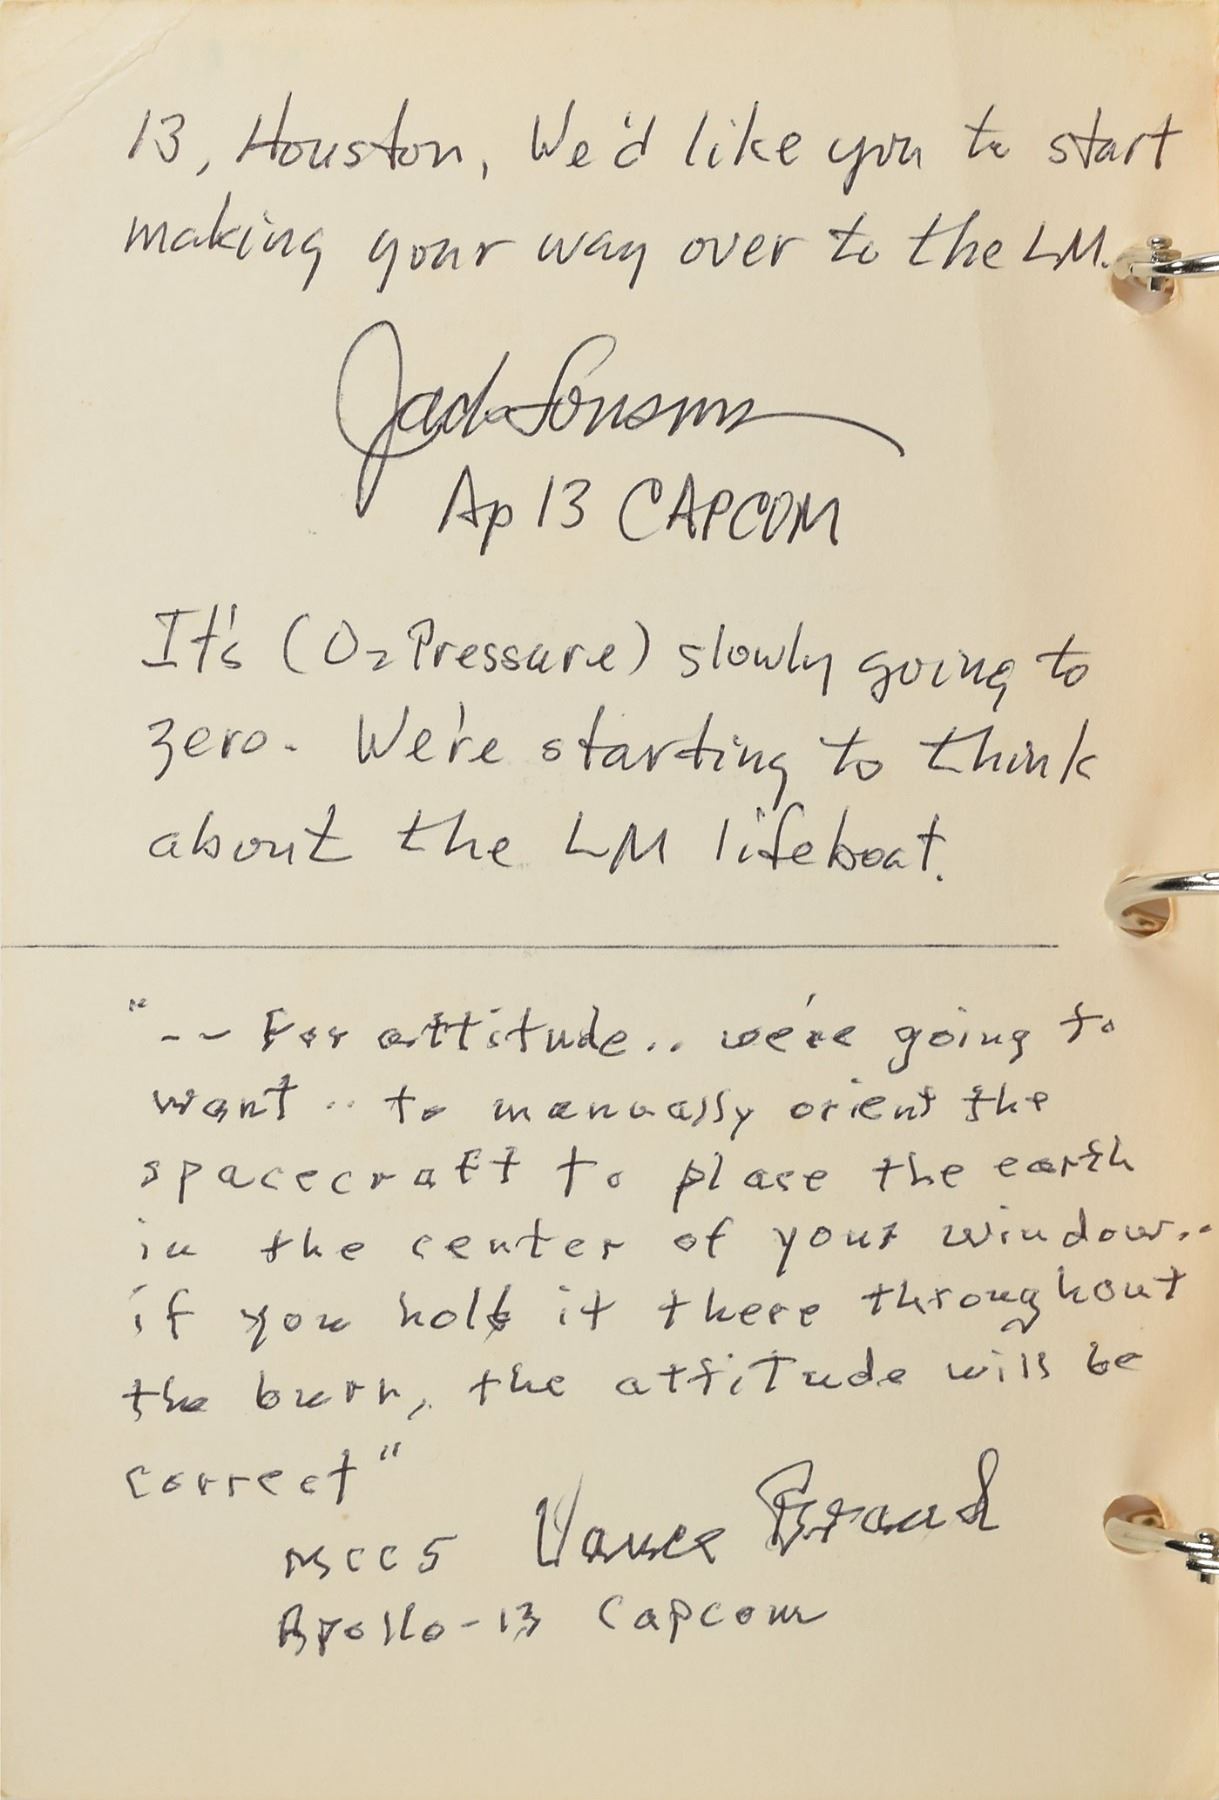 13, Houston, We'd like you to start
making your way over to the LM.
Jack Lousma
Ap 13 CAPCOM
It's (O₂ Pressure) slowly going to
zero. We're starting to think
about the LM lifeboat.
"-- For attitude.. we're going to
want .. to manually orient the
spacecraft to place the earth
in the center of your window..
if you hold it there throughout
the burn, the attitude will be
correct"
MCC5 Vance Brand
Apollo-13 Capcom